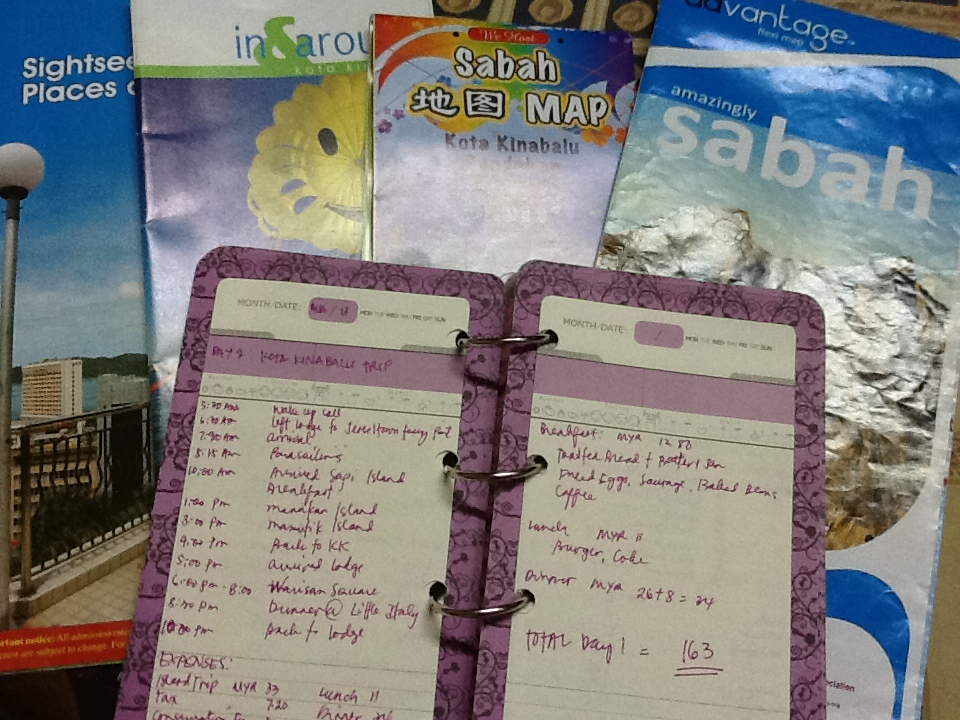 Sightsee
Places
in&arou
kota ki
We Host
Sabah
地图 MAP
Kota Kinabalu
advantage
flexi map
amazingly
sabah
MONTH DATE:
MON TUE WED THU FRI SAT SUN
DAY 2 KOTA KINABALU TRIP
5:30 Am Wake up call
6:30 Am left lodge to Jesselton ferry Port
7:30 Am arrival
8:15 Am Parasailing
10:00 Am Arrived Sapi Island
Breakfast
1:00 Pm Manukan Island
3:00 Pm Mamutik Island
4:00 Pm Back to KK
5:00 Pm arrived lodge
6:00 pm - 8:00 Warisan Square
8:00 pm Dinner @ Little Italy
10:00 pm back to lodge
EXPENSES:
Island Trip MYR 33 Lunch 11
Tax 7.20
MONTH DATE: /
MON TUE WED THU FRI SAT SUN
Breakfast: MYR 12.80
Toasted Bread + Butter
Fried Eggs, Sausage, Baked Beans
Coffee
Lunch MYR 11
Burger, Coke
Dinner MYR 26+8 = 34
TOTAL Day 1 = 163
ortant notice: All admission
are subject to change. For
ociation